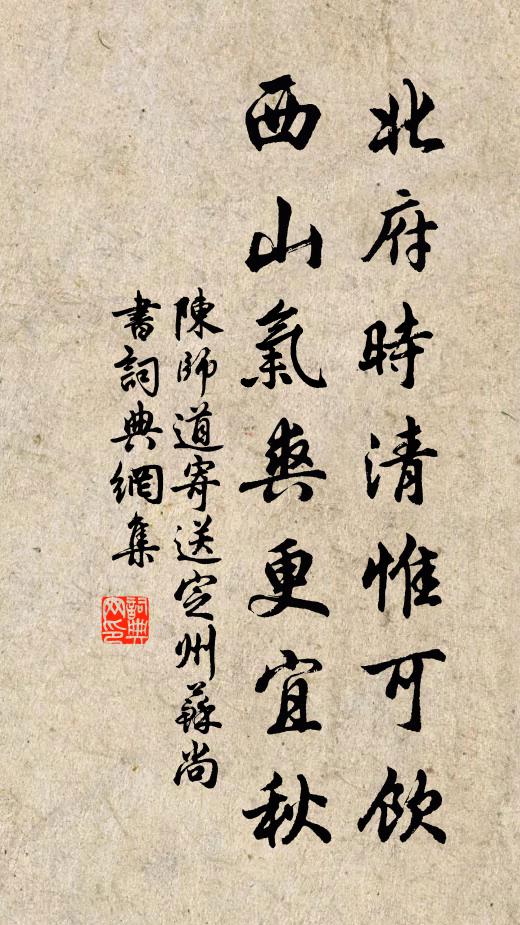 北府時清惟可飲
西山氣爽更宜秋
陳師道寄送定州蘇尚
書詞典網集
詞典
网印